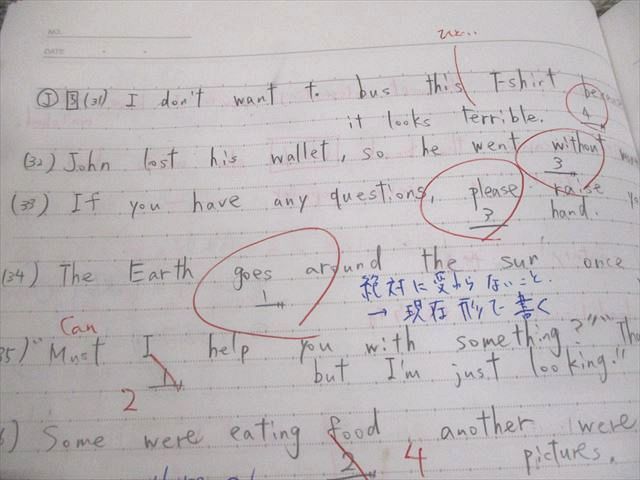 NO.
DATE
ひどい
① 3 (31) I don't want to bus this T-shirt
4
it looks terrible.
(32) John lost his wallet, so he went without
3
(33) If you have any questions, please raise
3 hand.
(34) The Earth goes around the sun once
1
絶対に変わらないこと.
→ 現在形で書く
Can
35) "Must I help you with something?" "Tha
1
2
but I'm just looking."
) Some were eating food another were
2 4
pictures.